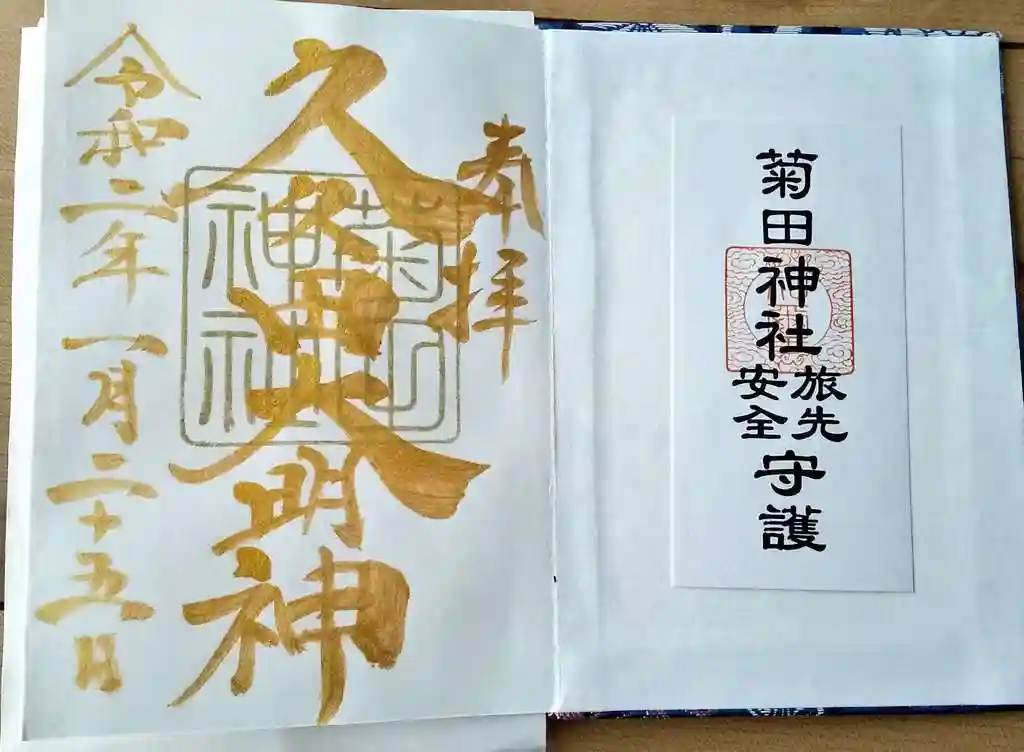 菊田神社
旅先
安全
守護
奉拝
久久田大明神
菊田
神社
令和二年一月二十五日